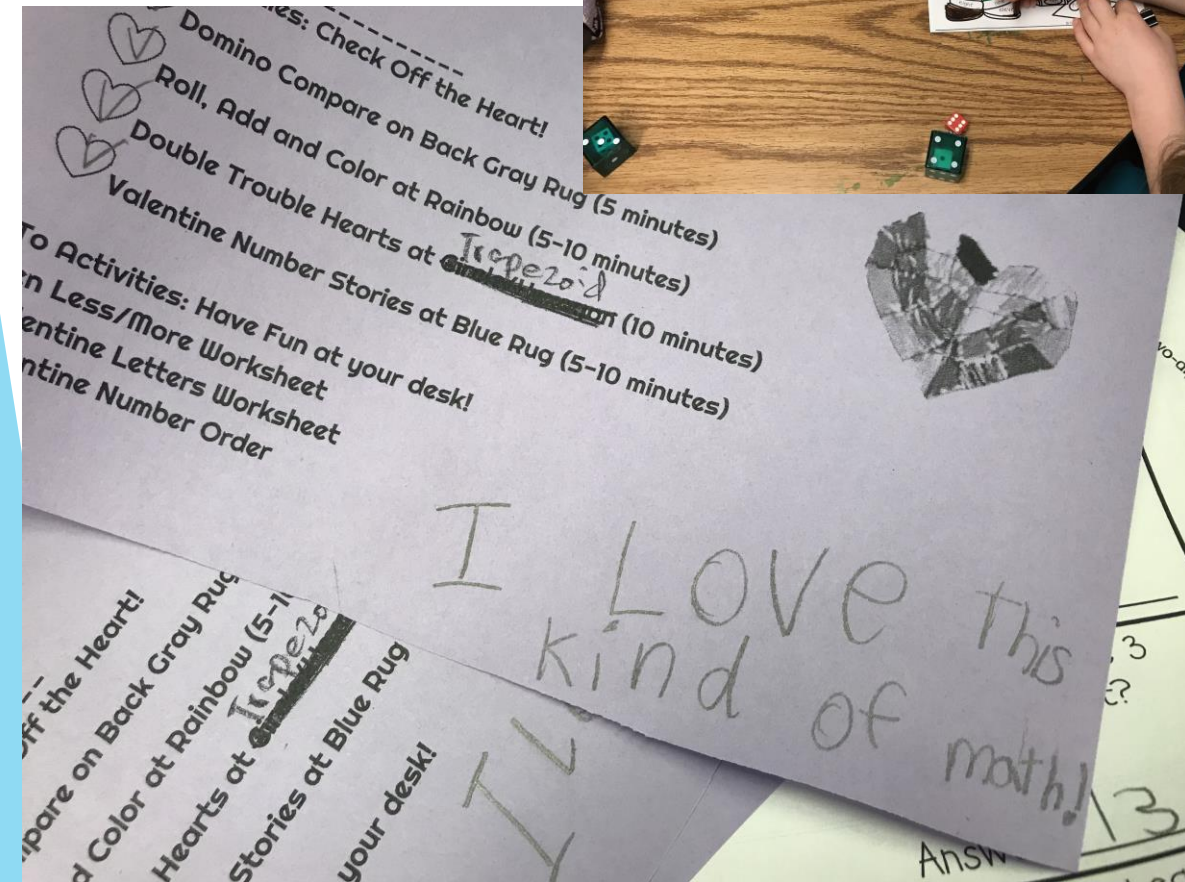 es: Check Off the Heart!
Domino Compare on Back Gray Rug (5 minutes)
Roll, Add and Color at Rainbow (5-10 minutes)
Trapezoid
Double Trouble Hearts at (10 minutes)
Valentine Number Stories at Blue Rug (5-10 minutes)
To Activities: Have Fun at your desk!
n Less/More Worksheet
entine Letters Worksheet
ntine Number Order
I LOVe This
kind of math!
ff the Heart!
mpare on Back Gray Rug
d Color at Rainbow (5-1
Trapezo
Hearts at
Stories at Blue Rug
your desk!
I L
3
?
13
Answ